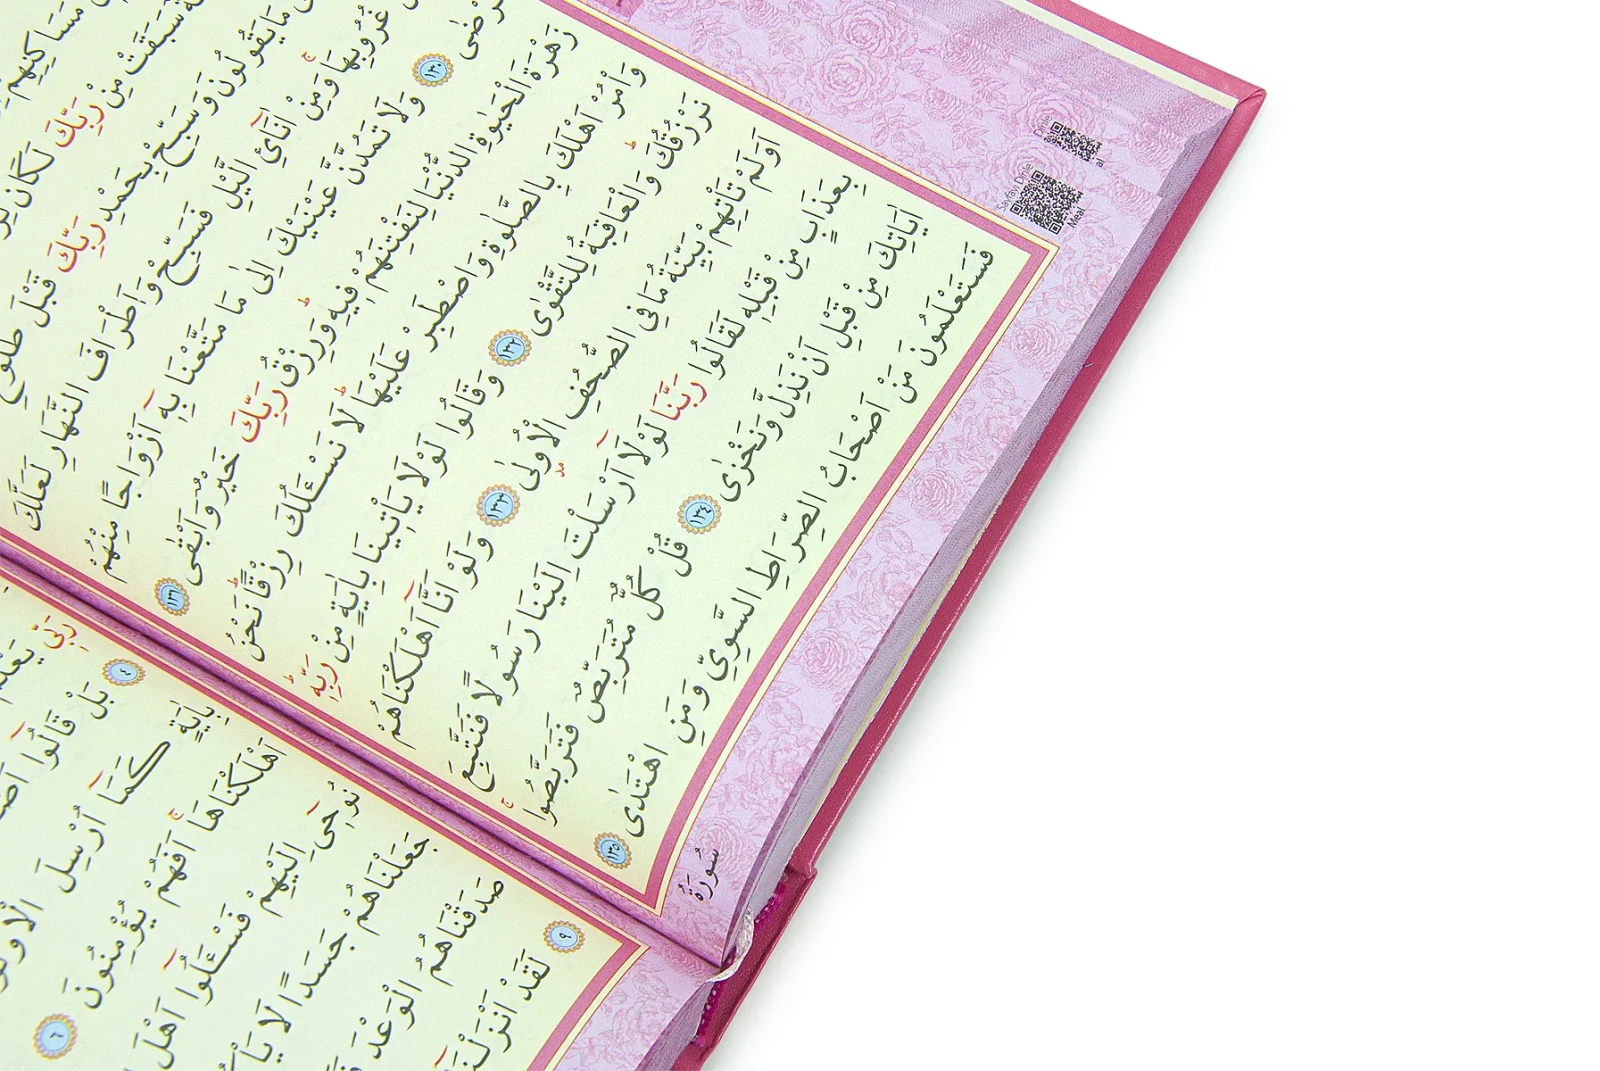 مَسَاكِنِهِمْ
سَبَقَتْ مِنْ رَبِّكَ لَكَانَ
مَا يَقُولُونَ وَسَبِّحْ بِحَمْدِ رَبِّكَ قَبْلَ طُلُوعِ
غُرُوبِهَاۚ وَمِنْ اٰنَٓائِ الَّيْلِ فَسَبِّحْ وَاَطْرَافَ النَّهَارِ لَعَلَّكَ
تَرْضٰى ﴿١٣٠﴾ وَلَا تَمُدَّنَّ عَيْنَيْكَ اِلٰى مَا مَتَّعْنَا بِه۪ٓ اَزْوَاجًا مِنْهُمْ
زَهْرَةَ الْحَيٰوةِ الدُّنْيَا لِنَفْتِنَهُمْ ف۪يهِۜ وَرِزْقُ رَبِّكَ خَيْرٌ وَاَبْقٰى ﴿١٣١﴾
وَأْمُرْ اَهْلَكَ بِالصَّلٰوةِ وَاصْطَبِرْ عَلَيْهَاۜ لَا نَسْـَٔلُكَ رِزْقًاۜ نَحْنُ
نَرْزُقُكَۜ وَالْعَاقِبَةُ لِلتَّقْوٰى ﴿١٣٢﴾ وَقَالُوا لَوْلَا يَأْت۪ينَا بِاٰيَةٍ مِنْ رَبِّه۪ۜ
اَوَلَمْ تَأْتِهِمْ بَيِّنَةُ مَا فِي الصُّحُفِ الْاُولٰى ﴿١٣٣﴾ وَلَوْ اَنَّٓا اَهْلَكْنَاهُمْ
بِعَذَابٍ مِنْ قَبْلِه۪ لَقَالُوا رَبَّنَا لَوْلَٓا اَرْسَلْتَ اِلَيْنَا رَسُولًا فَنَتَّبِعَ
اٰيَاتِكَ مِنْ قَبْلِ اَنْ نَذِلَّ وَنَخْزٰى ﴿١٣٤﴾ قُلْ كُلٌّ مُتَرَبِّصٌ فَتَرَبَّصُواۚ
فَسَتَعْلَمُونَ مَنْ اَصْحَابُ الصِّرَاطِ السَّوِيِّ وَمَنِ اهْتَدٰى ﴿١٣٥﴾
سُورَةُ
Sayfayı Dinle
Meal
رَبّ۪ي يَعْلَمُ
﴿٤﴾ بَلْ قَالُٓوا
بِاٰيَةٍ كَمَٓا اُرْسِلَ الْاَوَّلُونَ
اَهْلَكْنَاهَاۚ اَفَهُمْ يُؤْمِنُونَ ﴿٦﴾
نُوح۪ٓي اِلَيْهِمْ فَسْـَٔلُٓوا اَهْلَ
جَعَلْنَاهُمْ جَسَدًا لَا
صَدَقْنَاهُمُ الْوَعْدَ
﴿٩﴾ لَقَدْ اَنْزَلْنَٓا